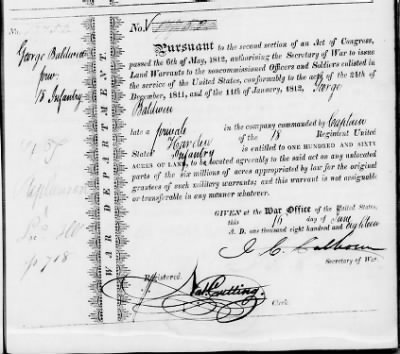 No.
George Baldwin
18 Infantry
WAR DEPARTMENT.
No.
Pursuant to the second section of an Act of Congress,
passed the 6th of May, 1812, authorising the Secretary of War to issue
Land Warrants to the noncommissioned Officers and Soldiers enlisted in
the service of the United States, conformably to the acts of the 24th of
December, 1811, and of the 11th of January, 1812, George
Baldwin
late a private in the company commanded by Captain
Harden of the 18 Regiment United
States Infantry is entitled to ONE HUNDRED AND SIXTY
ACRES OF LAND, to be located agreeably to the said act on any unlocated
parts of the six millions of acres appropriated by law for the original
grantees of such military warrants; and this warrant is not assignable
or transferable in any manner whatever.
GIVEN at the War Office of the United States,
this 16 day of June
A. D. one thousand eight hundred and eighteen
J. C. Calhoun
Secretary of War.
Registered
Nat Cutting.
Clerk.
p 718